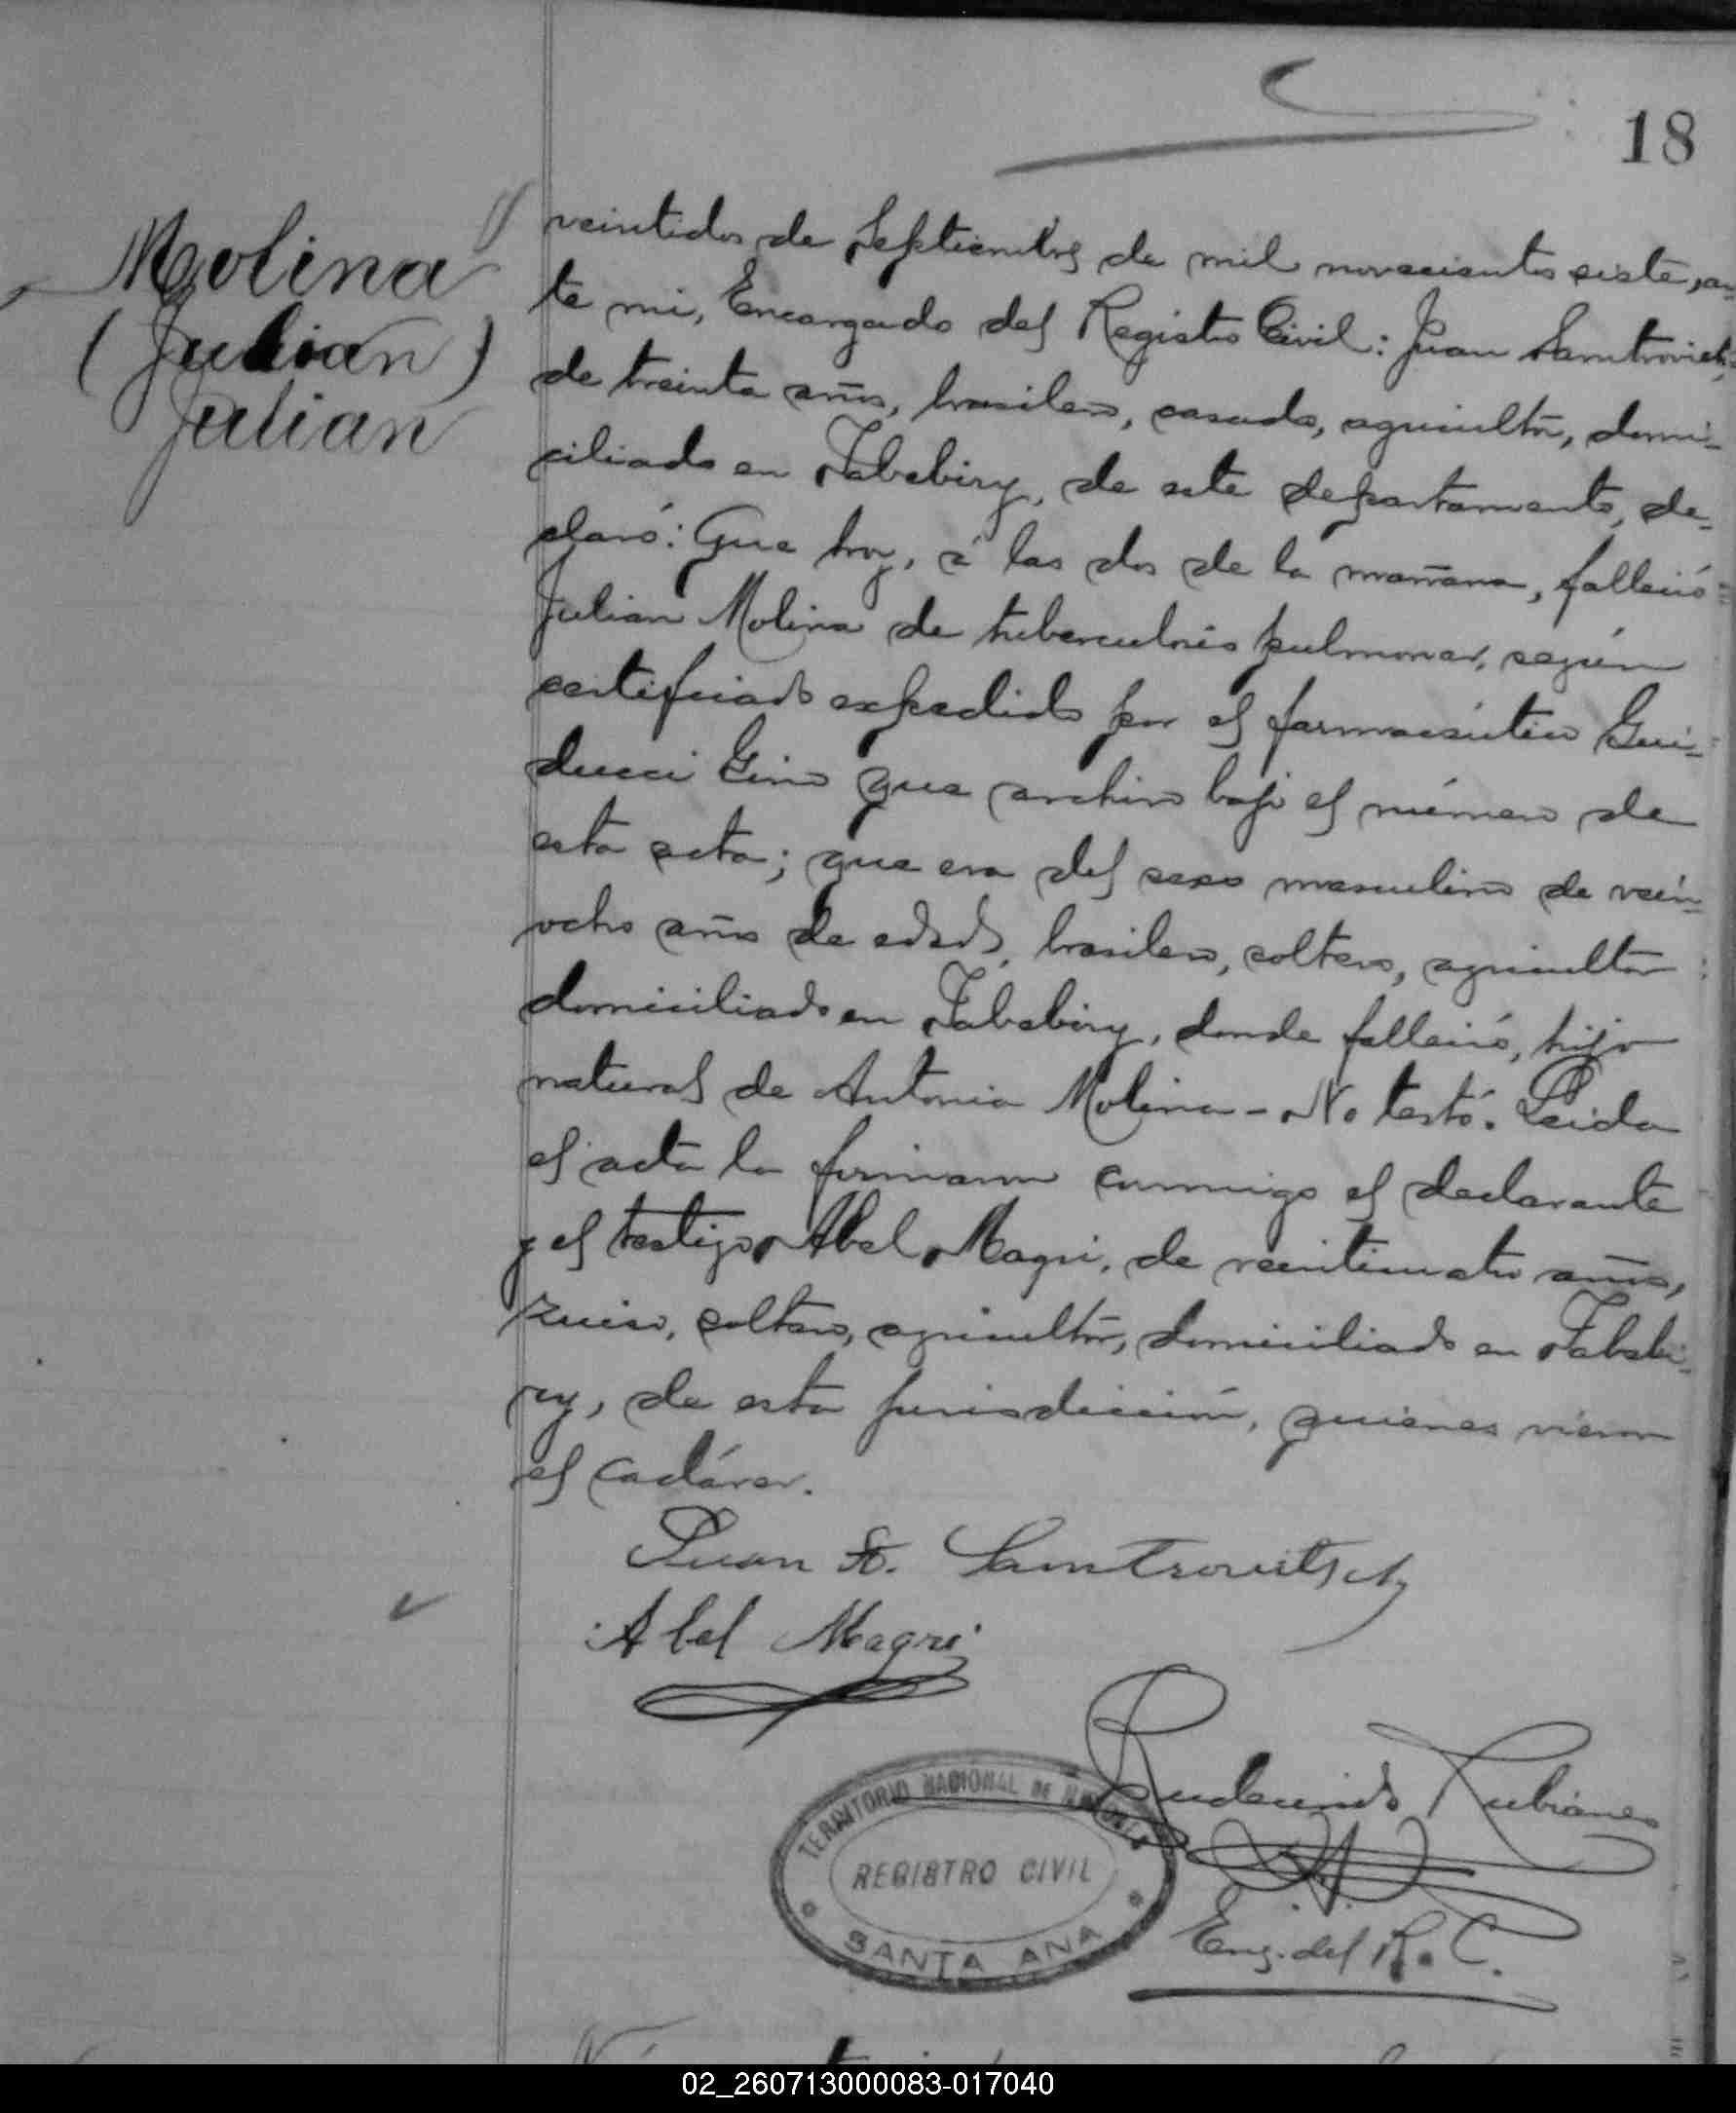 18
Molina
(Julian)
Julian
veintidos de Septiembre de mil novecientos siete, an-
te mi, Encargado del Registro Civil: Juan Samtrovich,
de treinta años, brasilero, casado, agricultor, domi-
ciliado en Yabebiry, de este departamento, de-
claró: Que hoy, á las dos de la mañana, falleció
Julian Molina de tuberculosis pulmonar, según
certificado expedido por el farmacéutico Gui-
ducci Gino que archivo bajo el número de
esta acta; que era del sexo masculino de vein-
ocho años de edad, brasilero, soltero, agricultor
domiciliado en Yabebiry, donde falleció, hijo
natural de Antonia Molina - No testó. Leida
el acta la firmaron conmigo el declarante
y el testigo Abel Magri, de veinticuatro años,
zuiso, soltero, agricultor, domiciliado en Yabebi-
ry, de esta jurisdicción, quienes vieron
el cadáver.
Juan St. Samtrovitsch
Abel Magri
Rudecindo Rubianes
TERRITORIO NACIONAL DE MISIONES
REGISTRO CIVIL
SANTA ANA
Eng. del R. C.
02_260713000083-017040